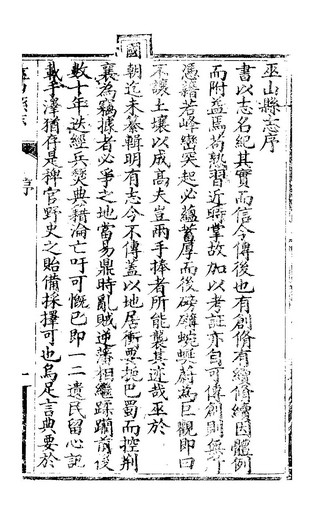 巫山縣志序
書以志名紀其實而信今傳後也有創脩有續脩續因體例
而附益焉苟熟習近時掌故加以考証亦自可傳創則無所
憑藉若峰巒突起必蘊蓄厚而後磅礴蜿蜒蔚為巨觀即曰
不讓土壤以成高夫豈兩手捧者所能襲其迹哉巫於
國朝迄未纂輯明有志今不傳蓋以地居衝要扼巴蜀而控荆
襄為竊據者必爭之地當易鼎時亂賊逆藩相繼蹂躪前後
數十年迭經兵燹典籍淪亡吁可慨已即一二遺民留心記
載手澤猶存是稗官野史之貽備採擇可也烏足言典要於
序
一